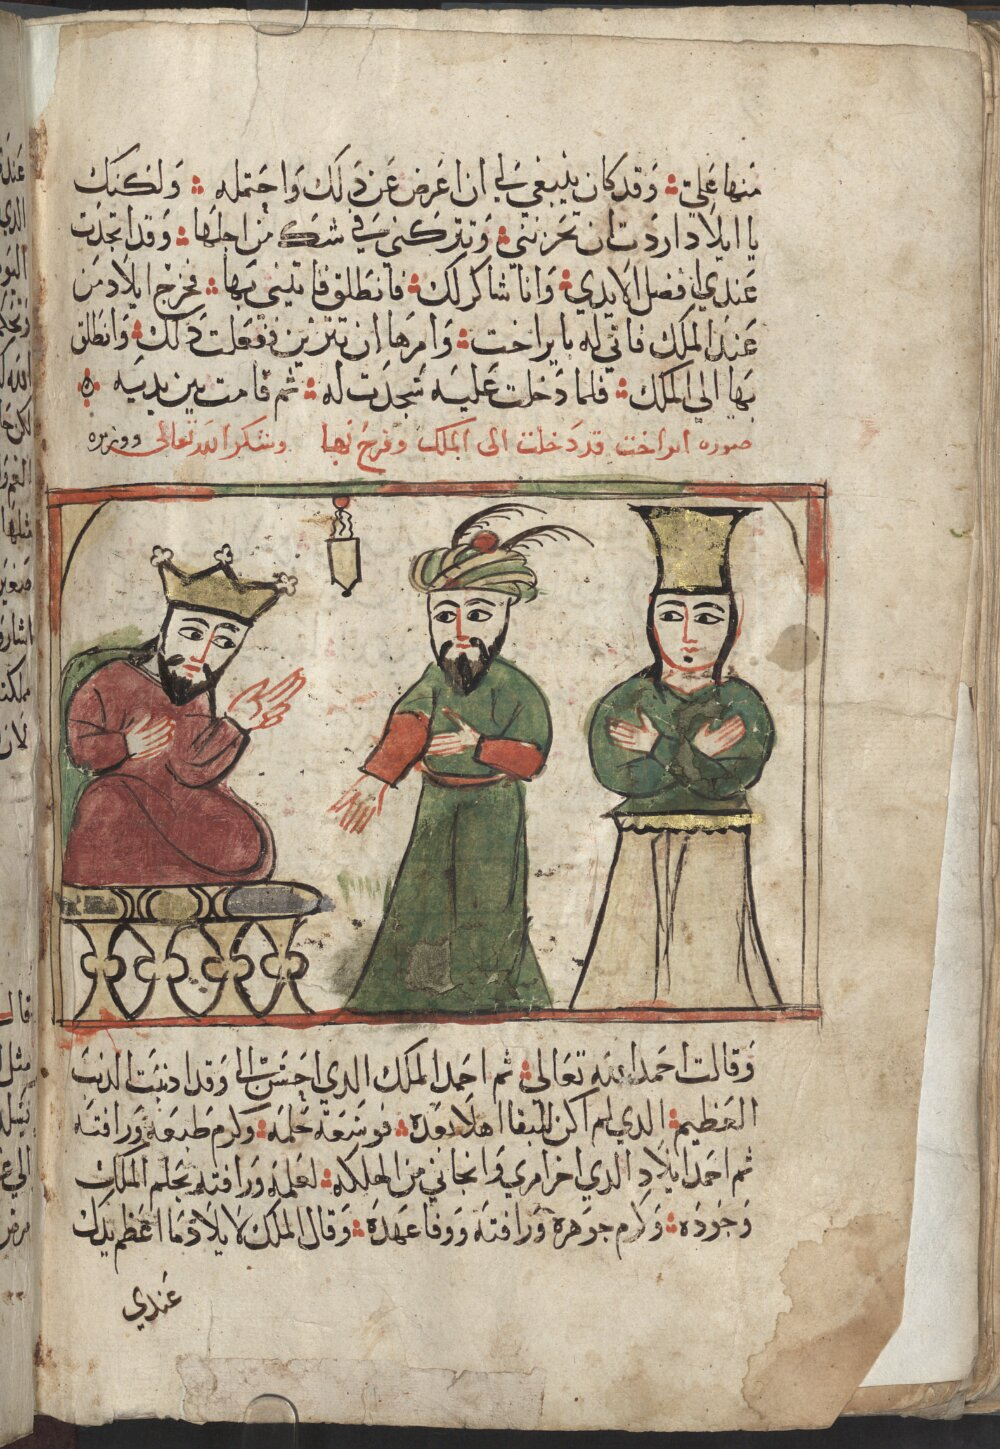 منها علي وقد كان ينبغي لي ان اعرض عن ذلك واحتمله ولكنك
يا ايلاد اردت ان تحزنني وتتركني في شك من اجلها وقد اتخذت
عندي افضل الايدي وانا شاكر لك فانطلق فاتيني بها فخرج ايلاد من
عند الملك فاتي له بايراخت وامرها ان تتزين ففعلت ذلك وانطلق
بها الي الملك فلما دخلت عليه سجدت له ثم قامت بين يديه ه
صوره ايراخت قد دخلت الى الملك وفرح بها وشكر الله تعالى ووزيره
وقالت احمد الله تعالي ثم احمد الملك الدي احسن الي وقد ادنبت الدنب
العظيم الدي لم اكن للبقا اهلا بعده فوسعه حلمه وكرم طبعه ورافته
ثم احمد ايلاد الدي اخر امري وانجاني من الهلكه لعلمه ورافته بحلم الملك
وجوده وكرم جوهره ورافته ووفا عهده وقال الملك لايلاد ما اعظم يدك
عندي